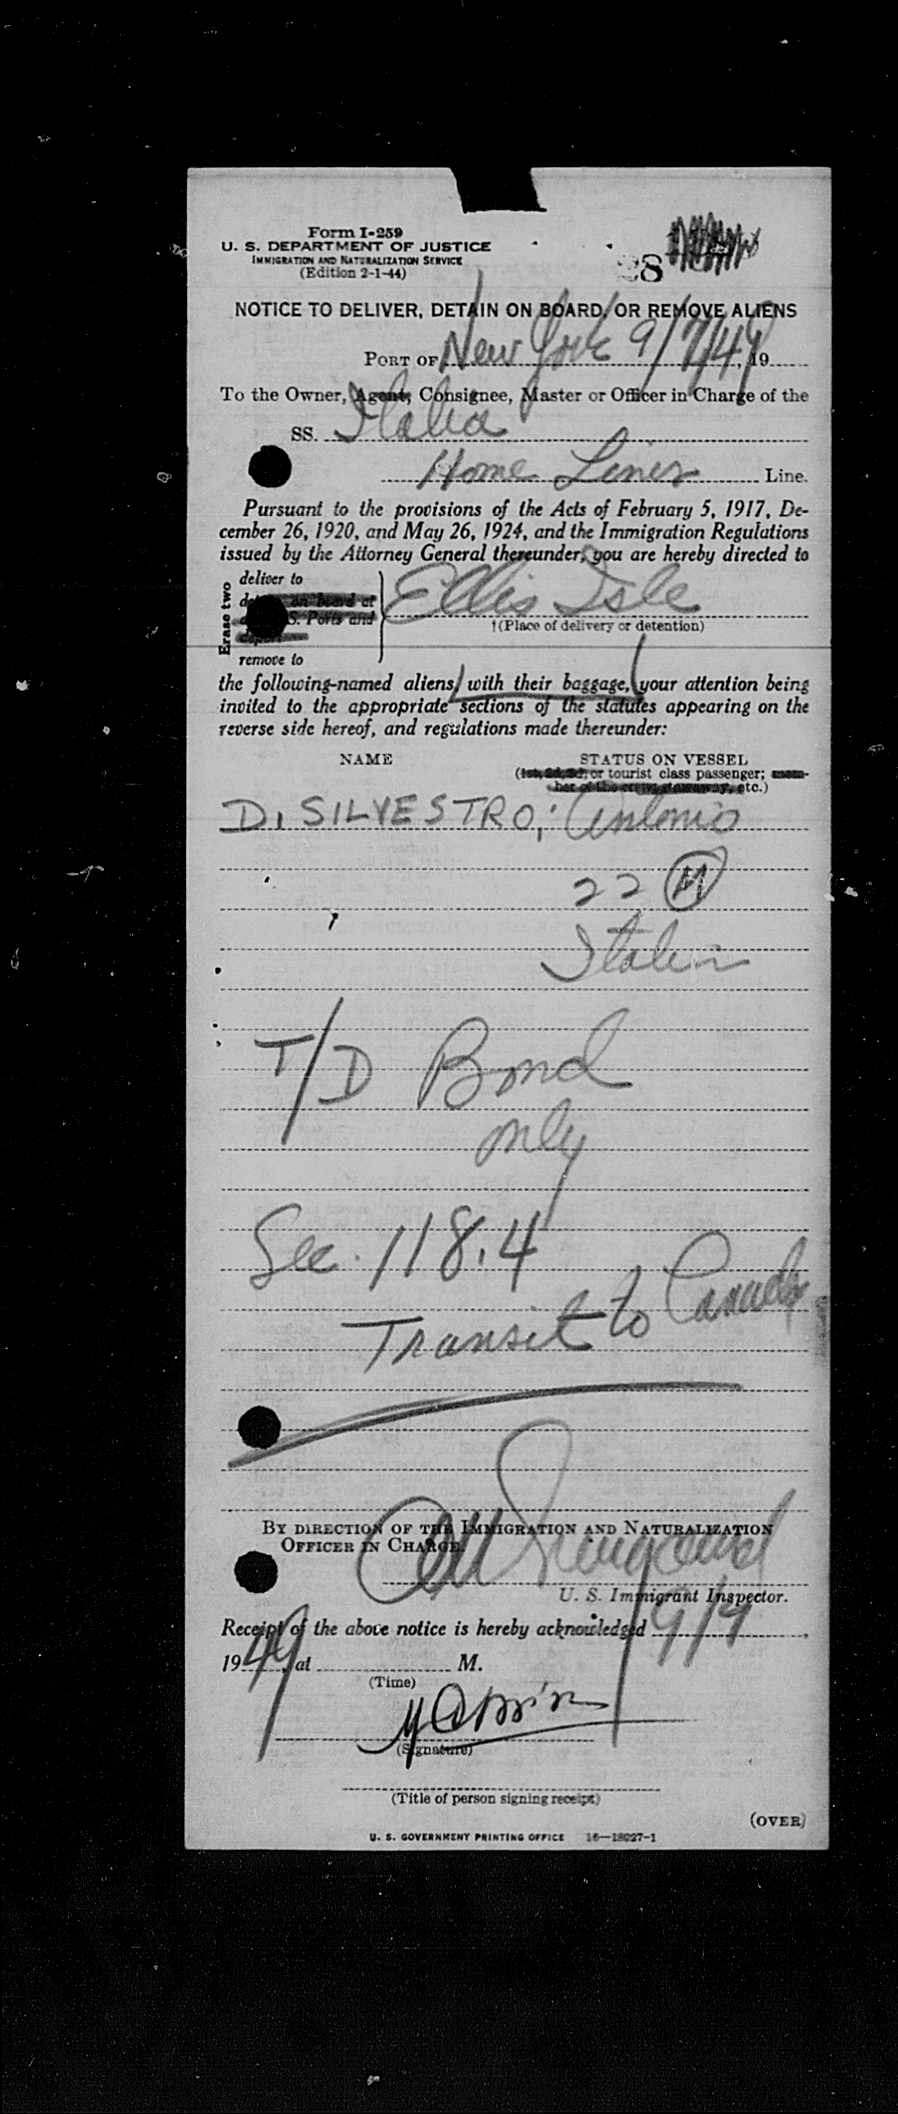 Form I-259
U. S. DEPARTMENT OF JUSTICE
IMMIGRATION AND NATURALIZATION SERVICE
(Edition 2-1-44)
28
NOTICE TO DELIVER, DETAIN ON BOARD, OR REMOVE ALIENS
PORT OF New York 9/7/49, 19
To the Owner, Agent, Consignee, Master or Officer in Charge of the
SS. Italia
Home Lines Line.
Pursuant to the provisions of the Acts of February 5, 1917, De-
cember 26, 1920, and May 26, 1924, and the Immigration Regulations
issued by the Attorney General thereunder, you are hereby directed to
Erase two
deliver to
on board at
S. Ports and
remove to
Ellis Isle
†(Place of delivery or detention)
the following-named aliens, with their baggage, your attention being
invited to the appropriate sections of the statutes appearing on the
reverse side hereof, and regulations made thereunder:
NAME STATUS ON VESSEL
(1st, 2d, 3d, or tourist class passenger; mem-
ber of the crew, stowaway, etc.)
DI SILVESTRO, Antonio
22 M
Italian
T/D Bond
only
Sec. 118.4
Transit to Canada
BY DIRECTION OF THE IMMIGRATION AND NATURALIZATION
OFFICER IN CHARGE.
U. S. Immigrant Inspector.
Receipt of the above notice is hereby acknowledged 9/9,
1949, at M.
(Time)
(Signature)
(Title of person signing receipt)
(OVER)
U. S. GOVERNMENT PRINTING OFFICE 16—18027-1